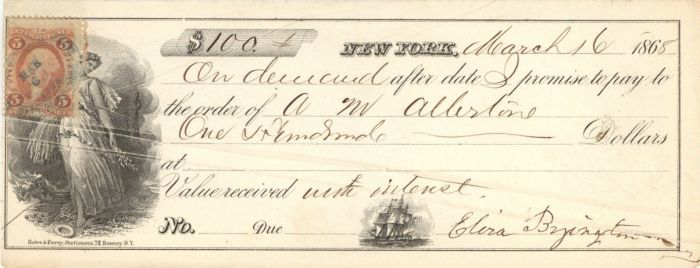 $100. NEW YORK, March 16 1868
On demand after date I promise to pay to
the order of A M Allerton
One Hundred Dollars
at
Value received with interest.
No. Due Eliza Byington
5 5
5 5
Hales & Perry, Stationers, 76 Bowery N.Y.